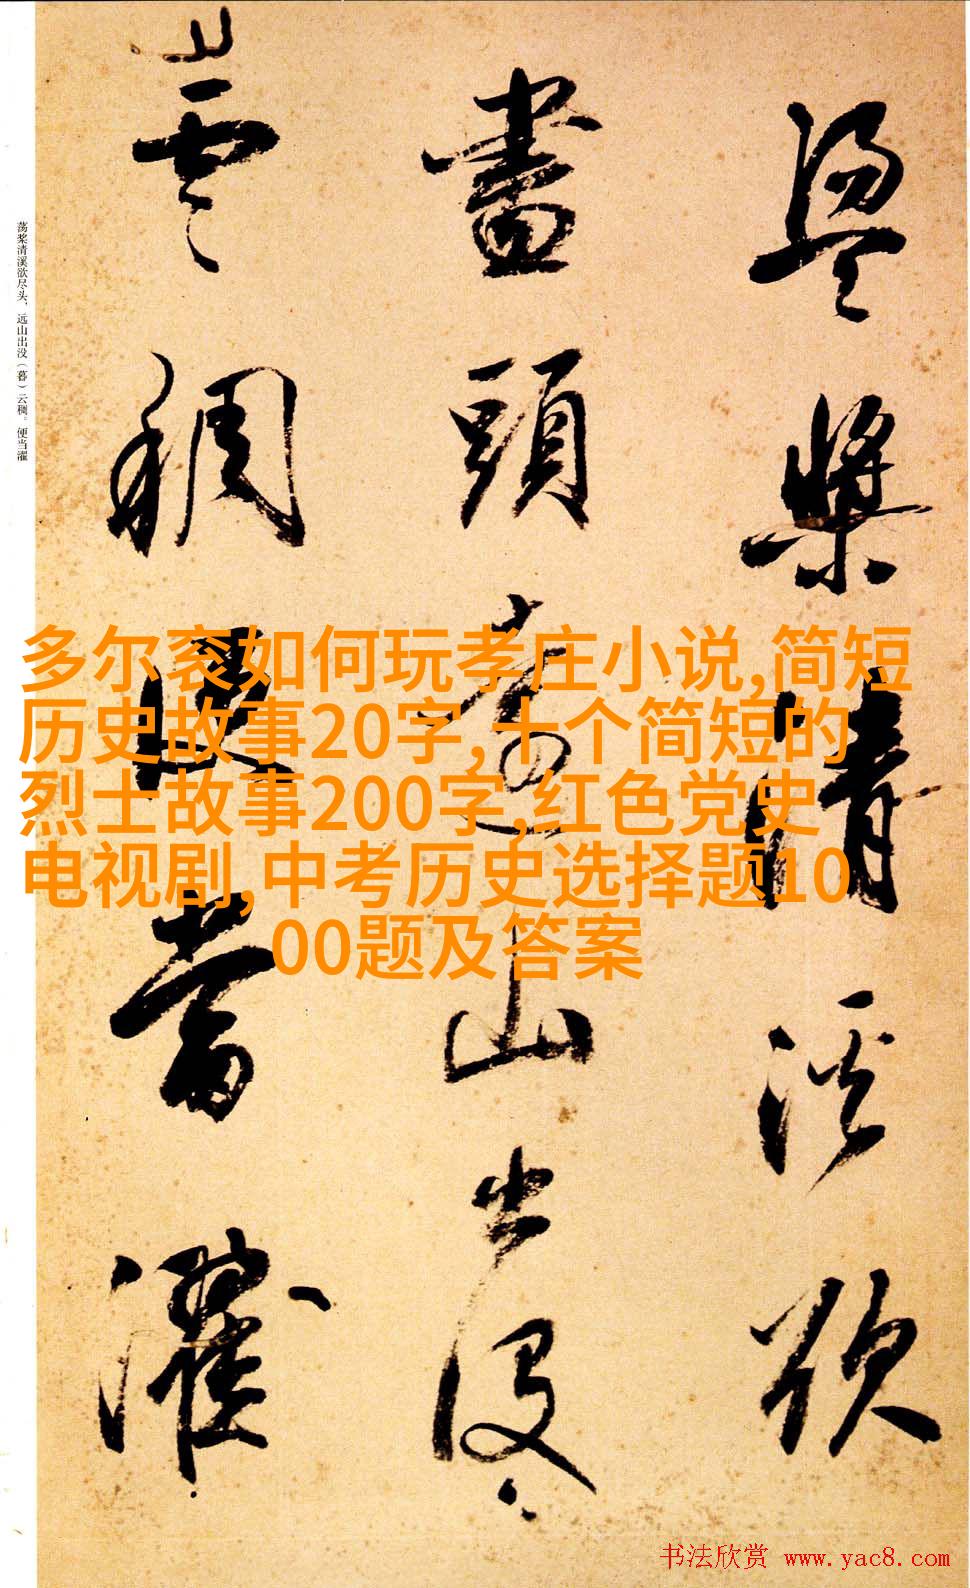 盪槳清溪欲
盡頭遠山出沒
雲稠便當濯
荡桨清溪欲尽头，远山出没（暮）云稠。便当濯
多尔衮如何玩孝庄小说,简短
历史故事20字,十个简短的
烈士故事200字,红色党史
电视剧,中考历史选择题10
00题及答案
书法欣赏 www.yac8.com